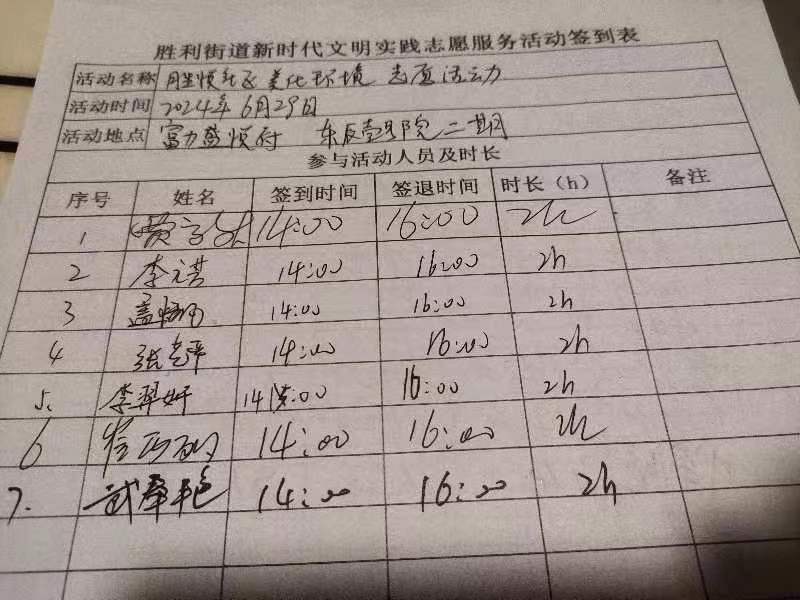 胜利街道新时代文明实践志愿服务活动签到表
活动名称 胜悦社区 美化环境 志愿活动
活动时间 2024年6月29日
活动地点 富力盛悦府 东辰壹号院二期
参与活动人员及时长
序号 姓名 签到时间 签退时间 时长（h） 备注
1 14:00 16:00 2h
2 李元祺 14:00 16:00 2h
3 14:00 16:00 2h
4 张 14:00 16:00 2h
5. 李羿妍 14:00 16:00 2h
6 14:00 16:00 2h
7. 武 艳 14:00 16:00 2h